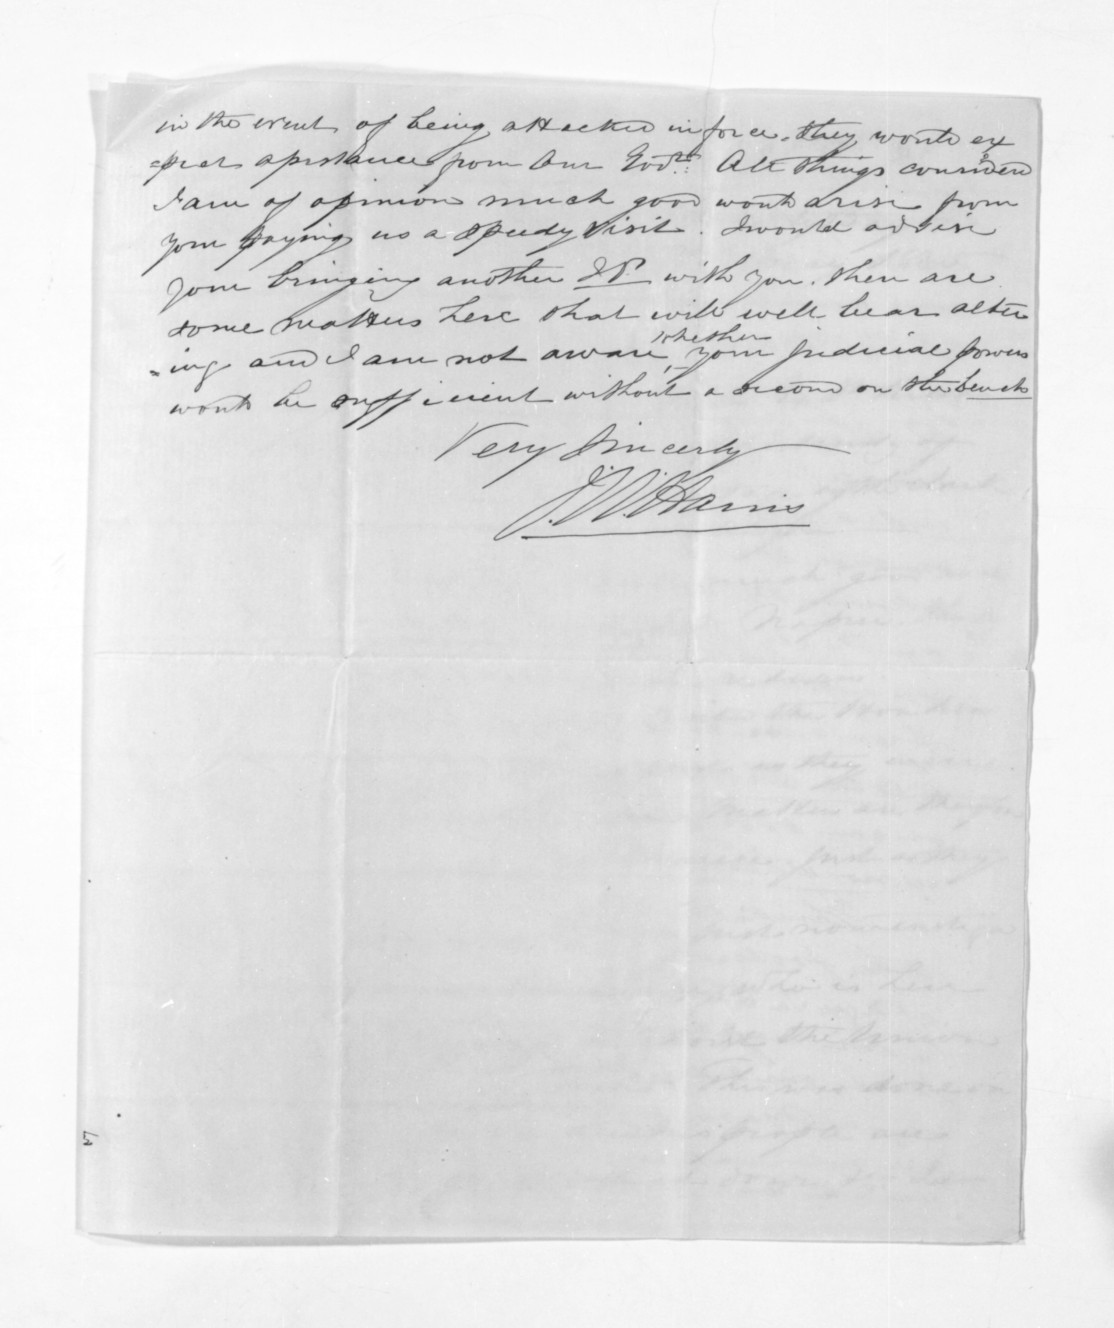 in the event of being attacked in force, they would ex
=pect assistance from Our Govt. All things considered
I am of opinion much good would arise from
your paying us a speedy visit. I would advise
your bringing another J.P. with you. there are
some matters here that will well bear alter
=ing and I am not aware whether your judicial powers
would be sufficient without a second on the bench
Very Sincerly
J. W. Harris